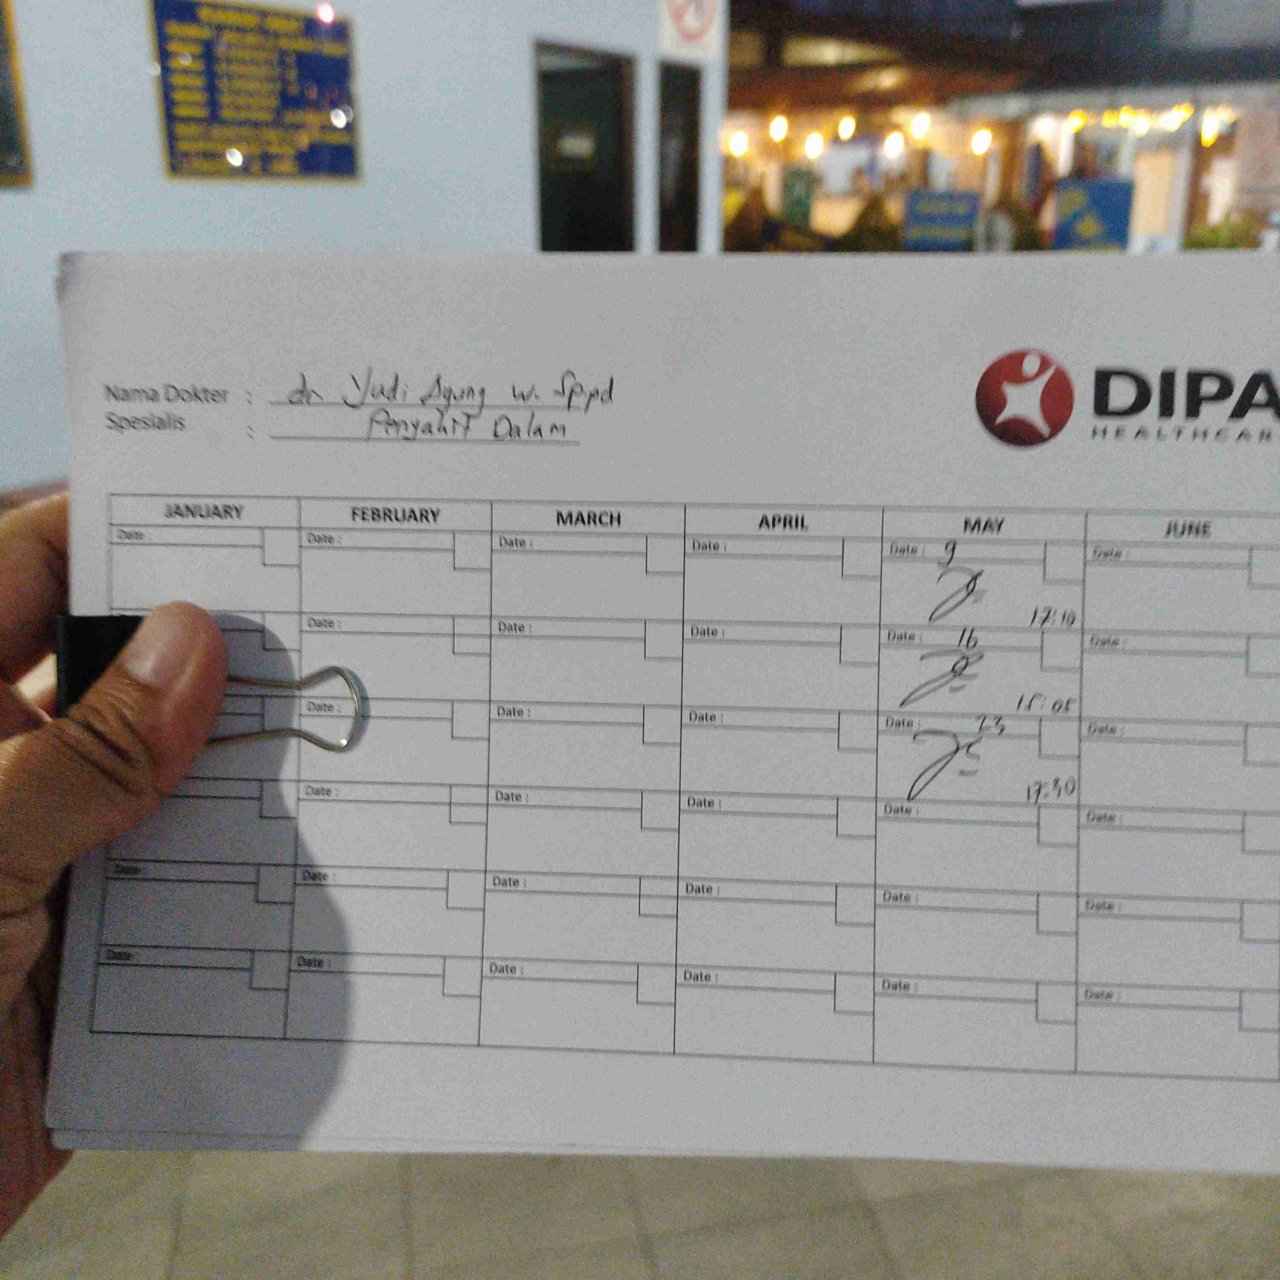 Nama Dokter : dr Yudi Agung W. Sppd
Spesialis : Penyakit Dalam
DIPA
HEALTHCAR
JANUARY FEBRUARY MARCH APRIL MAY JUNE
Date : Date : Date : Date : Date : 9 Date :
17:10
Date : Date : Date : Date : 16 Date :
15:05
Date : Date : Date : Date : 23 Date :
17:30
Date : Date : Date : Date : Date :
Date : Date : Date : Date : Date : Date :
Date : Date : Date : Date : Date : Date :